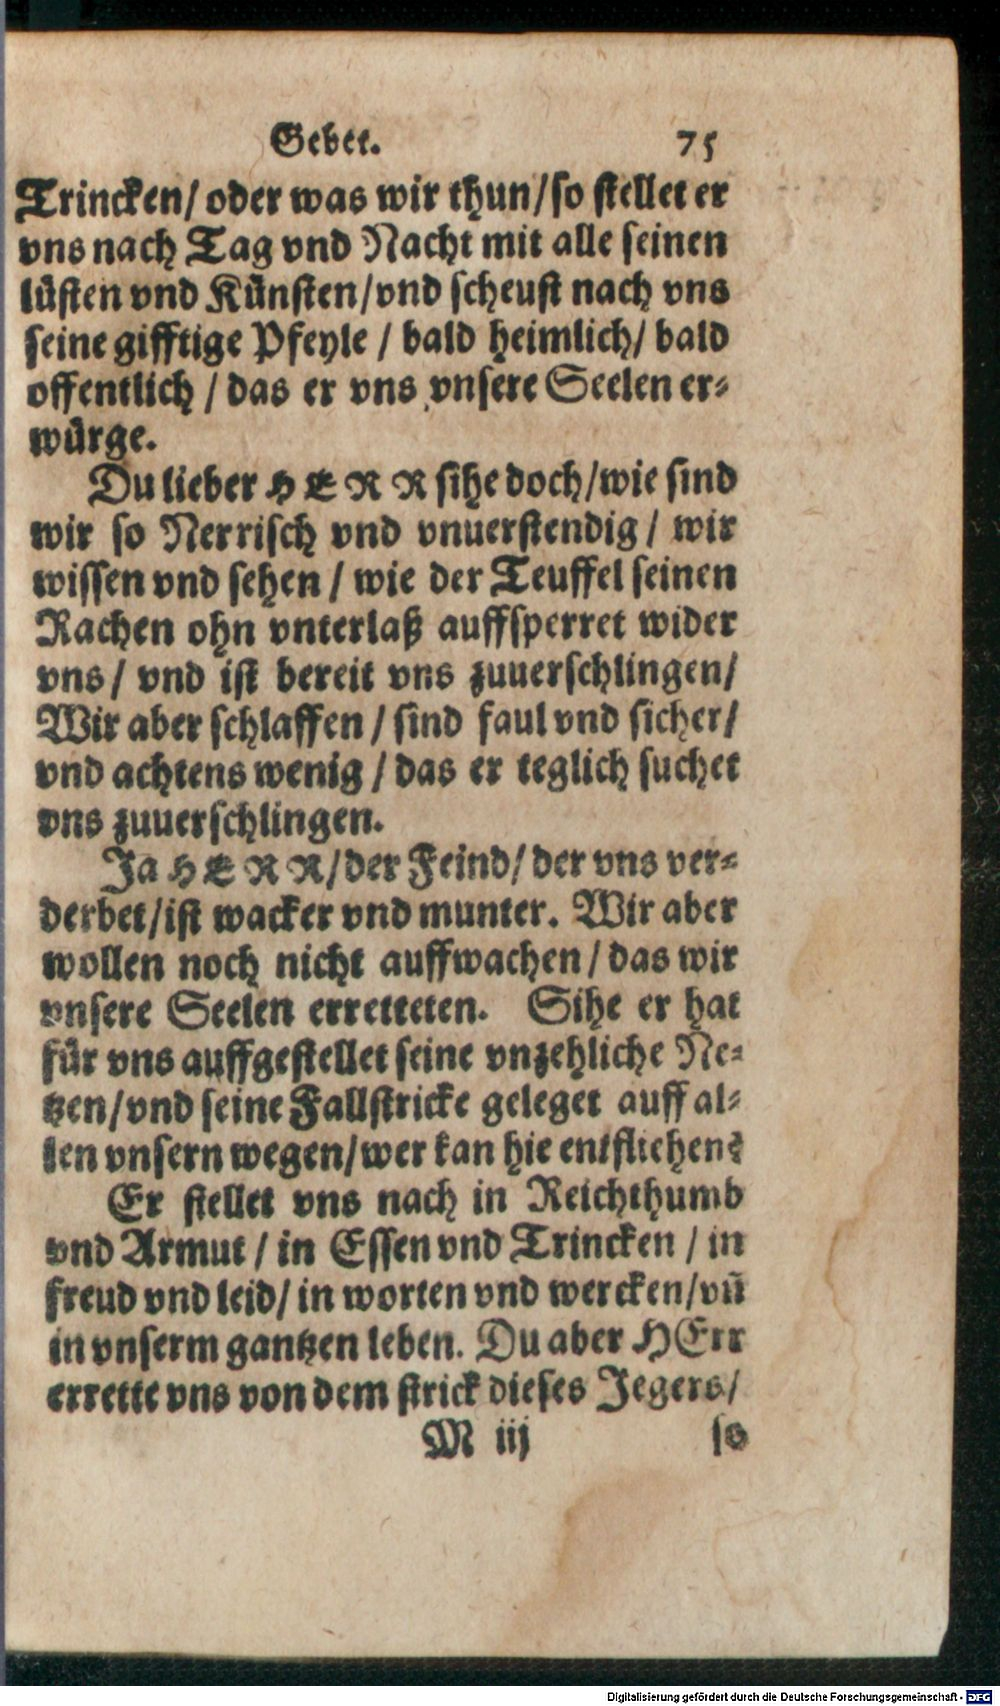 Gebet. 75
Trincken/ oder was wir thun/ so stellet er
vns nach Tag vnd Nacht mit alle seinen
lüsten vnd Künsten/ vnd scheust nach vns
seine gifftige Pfeyle / bald heimlich/ bald
offentlich / das er vns vnsere Seelen er-
würge.
Du lieber HERR sihe doch/ wie sind
wir so Nerrisch vnd vnuerstendig / wir
wissen vnd sehen / wie der Teuffel seinen
Rachen ohn vnterlaß auffsperret wider
vns / vnd ist bereit vns zuuerschlingen/
Wir aber schlaffen / sind faul vnd sicher/
vnd achtens wenig / das er teglich suchet
vns zuuerschlingen.
Ja HERR/ der Feind/ der vns ver-
derbet/ ist wacker vnd munter. Wir aber
wollen noch nicht auffwachen / das wir
vnsere Seelen erretteten. Sihe er hat
für vns auffgestellet seine vnzehliche Ne-
tzen/ vnd seine Fallstricke geleget auff al-
len vnsern wegen/ wer kan hie entfliehen?
Er stellet vns nach in Reichthumb
vnd Armut / in Essen vnd Trincken / in
freud vnd leid/ in worten vnd wercken/ vñ
in vnserm gantzen leben. Du aber HErr
errette vns von dem strick dieses Jegers/
M iij so
Digitalisierung gefördert durch die Deutsche Forschungsgemeinschaft - DFG